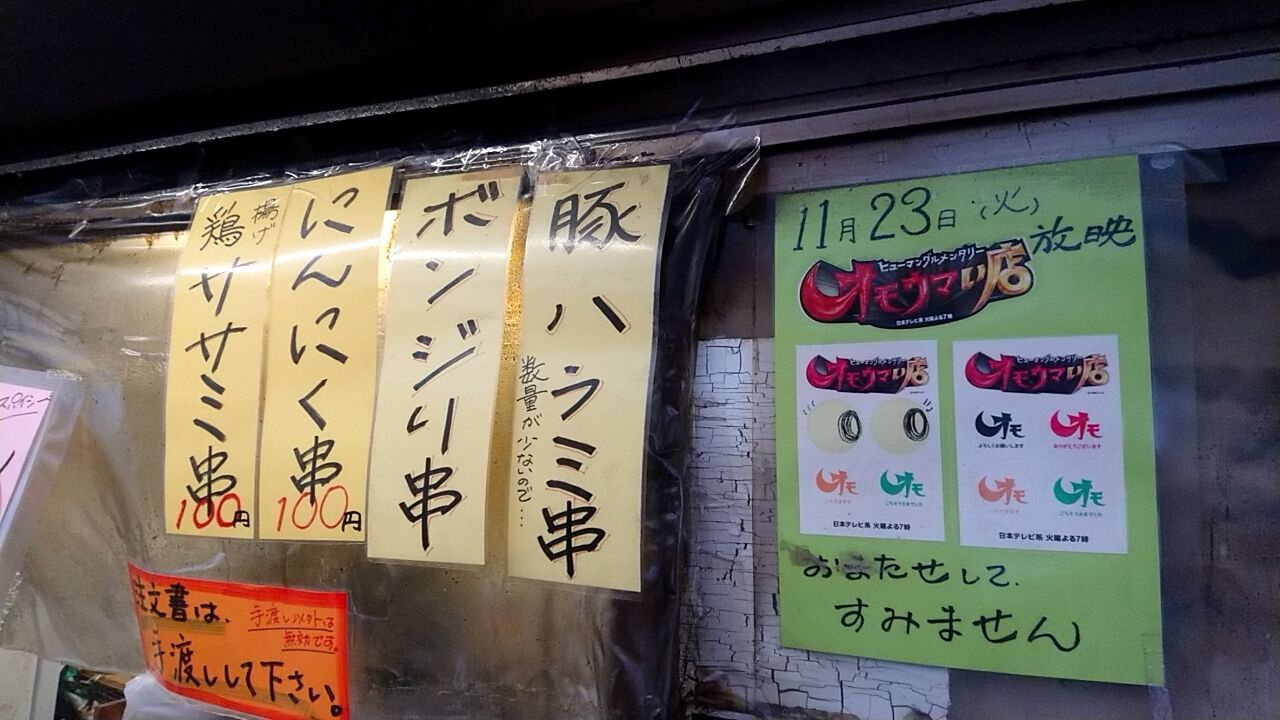 豚ハラミ串
数量が少ないので…
ボンジリ串
にんにく串
100円
揚げ
鶏ササミ串
100円
注文書は、
手渡しして下さい。
手渡し以外は
無効です。
11月23日(火)
放映
ヒューマングルメンタリー
オモウマい店
日本テレビ系 火曜よる7時
ヒューマングルメンタリー
オモウマい店
オモ
オモ
ごちそうさまでした
日本テレビ系 火曜よる7時
ヒューマングルメンタリー
オモウマい店
オモ
よろしくお願いします
オモ
ありがとうございます
オモ
オモ
ごちそうさまでした
日本テレビ系 火曜よる7時
おまたせして、
すみません